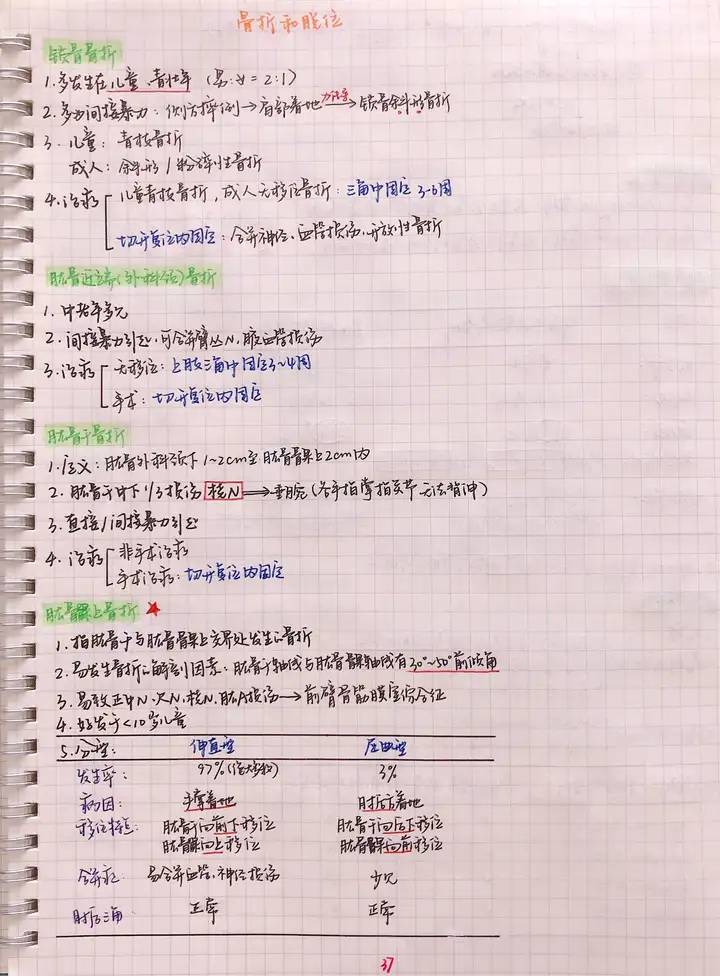 骨折和脱位
锁骨骨折
1.多发生在儿童、青壮年 (男:女=2:1)
2.多为间接暴力:侧方摔倒→肩部着地 力传导→锁骨斜形骨折
3.儿童:青枝骨折
成人:斜形/粉碎性骨折
4.治疗 儿童青枝骨折,成人无移位骨折:三角巾固定3-6周
切开复位内固定:合并神经、血管损伤,开放性骨折
肱骨近端(外科颈)骨折
1.中老年多见
2.间接暴力引起,可合并臂丛N、腋血管损伤
3.治疗 无移位:上肢三角巾固定3~4周
手术:切开复位内固定
肱骨干骨折
1.定义:肱骨外科颈下1~2cm至肱骨髁上2cm内
2.肱骨干中下1/3损伤 桡N ⟹垂腕(各手指掌指关节无法背伸)
3.直接/间接暴力引起
4.治疗 非手术治疗
手术治疗:切开复位内固定
肱骨髁上骨折 ★
1.指肱骨干与肱骨髁上交界处发生的骨折
2.易发生骨折的解剖因素:肱骨干轴线与肱骨髁轴线有30°~50°前倾角
3.易致正中N、尺N、桡N、肱A损伤→前臂骨筋膜室综合征
4.好发于<10岁儿童
5.分型: 伸直型 屈曲型
发生率: 97%(绝大多数) 3%
病因: 手撑着地 肘后方着地
移位特点: 肱骨干向前下移位 肱骨干向后下移位
肱骨髁向上移位 肱骨髁向前移位
合并症: 易合并血管、神经损伤 少见
肘后三角: 正常 正常
37